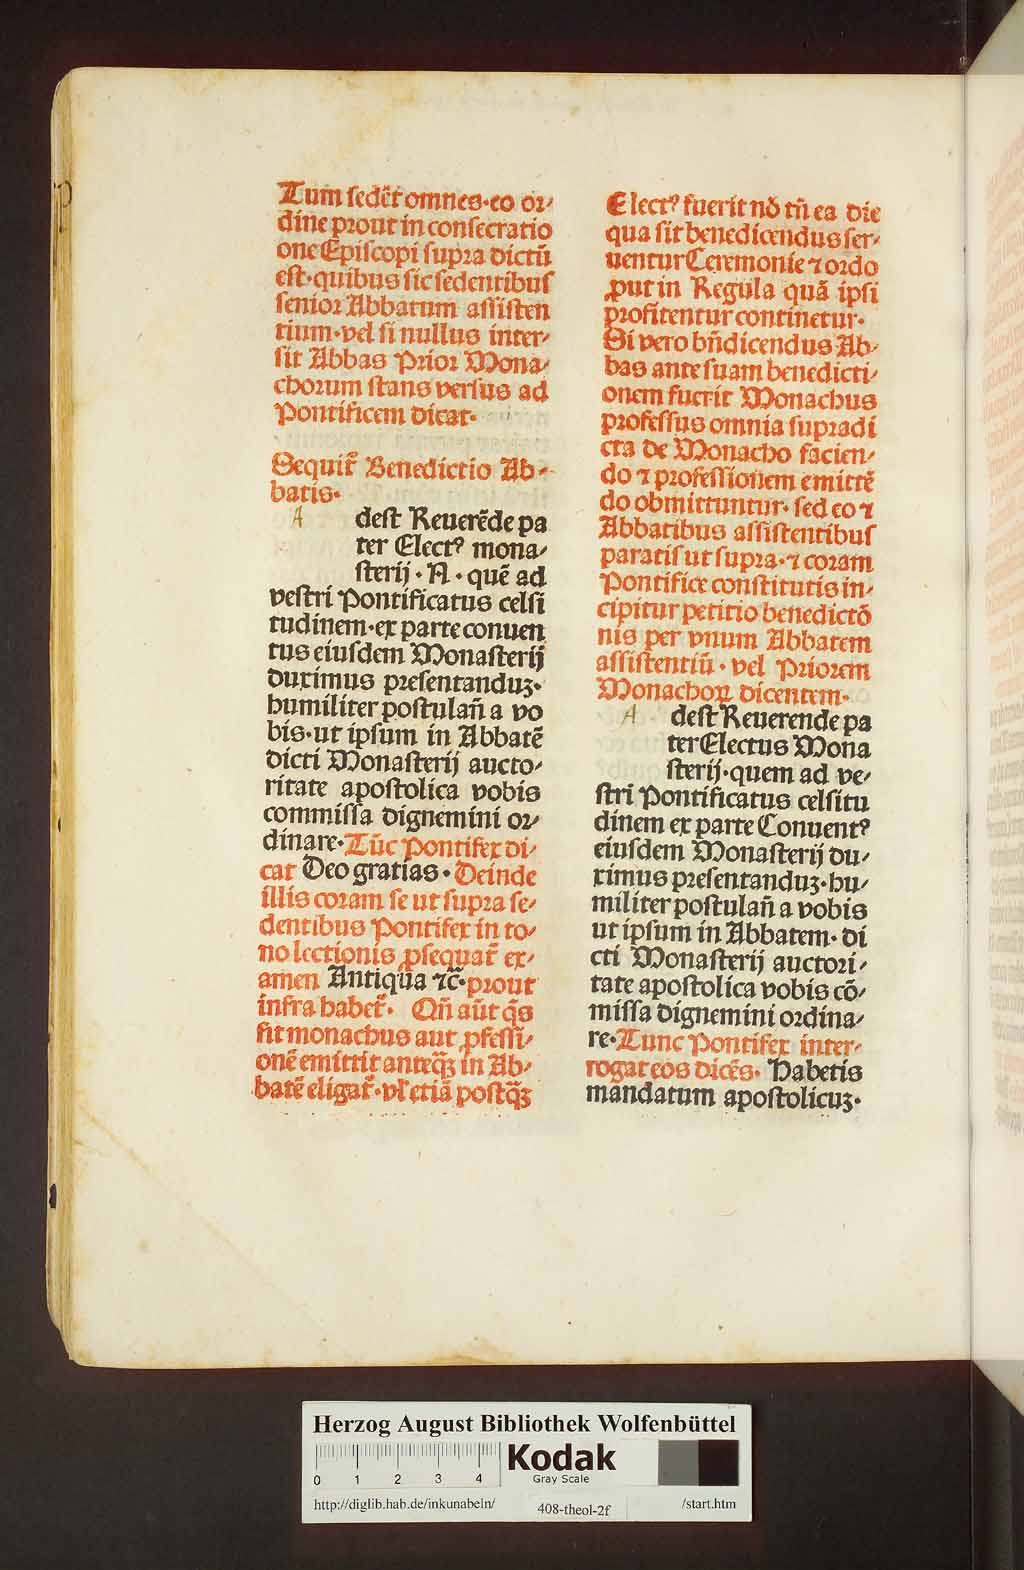 Tum sedēt omnes·eo or⸗
dine prout in consecratio
one Episcopi supra dictū
est·quibus sic sedentibus
senior Abbatum assisten
tium·vel si nullus inter⸗
sit Abbas Prior Mona⸗
chorum stans versus ad
Pontificem dicat·
Sequit᷑ Benedictio Ab⸗
batis·
A dest Reuerēde pa
ter Electꝰ mona⸗
sterij·N·quē ad
vestri Pontificatus celsi
tudinem·ex parte conuen
tus eiusdem Monasterij
duximus presentanduꝫ·
humiliter postulan̄ a vo
bis·ut ipsum in Abbatē
dicti Monasterij aucto⸗
ritate apostolica vobis
commissa dignemini or⸗
dinare·Tūc Pontifex di⸗
cat Deo gratias·Deinde
illis coram se ut supra se⸗
dentibus Pontifex in to⸗
no lectionis ꝓsequat᷑ ex⸗
amen Antiqua ⁊c̄·prout
infra habet᷑· Qn̄ aūt q̄s
fit monachus aut ꝓfessi⸗
onē emittit anteqꝫ̄ in Ab⸗
batē eligat᷑·vl̄ etiā postqꝫ̄
Electꝰ fuerit nō tn̄ ea die
qua sit benedicendus ser⸗
uentur Ceremonie ⁊ ordo
ꝓut in Regula quā ipsi
profitentur continetur·
Si vero bn̄dicendus Ab⸗
bas ante suam benedicti⸗
onem fuerit Monachus
professus omnia supradi
cta de Monacho facien⸗
do ⁊ professionem emittē
do obmittuntur· sed eo ⁊
Abbatibus assistentibus
paratis ut supra·⁊ coram
Pontifice constitutis in⸗
cipitur petitio benedictō
nis per vnum Abbatem
assistentiū·vel Priorem
Monachoꝝ dicentem·
A dest Reuerende pa
ter Electus Mona
sterij·quem ad ve⸗
stri Pontificatus celsitu
dinem ex parte Conuentꝰ
eiusdem Monasterij du⸗
ximus presentanduꝫ·hu⸗
militer postulan̄ a vobis
ut ipsum in Abbatem·di
cti Monasterij auctori⸗
tate apostolica vobis cō⸗
missa dignemini ordina⸗
re·Tunc Pontifex inter⸗
rogat eos dicēs· Habetis
mandatum apostolicuꝫ·
Herzog August Bibliothek Wolfenbüttel
0 1 2 3 4
Kodak
Gray Scale
http://diglib.hab.de/inkunabeln/ 408-theol-2f /start.htm